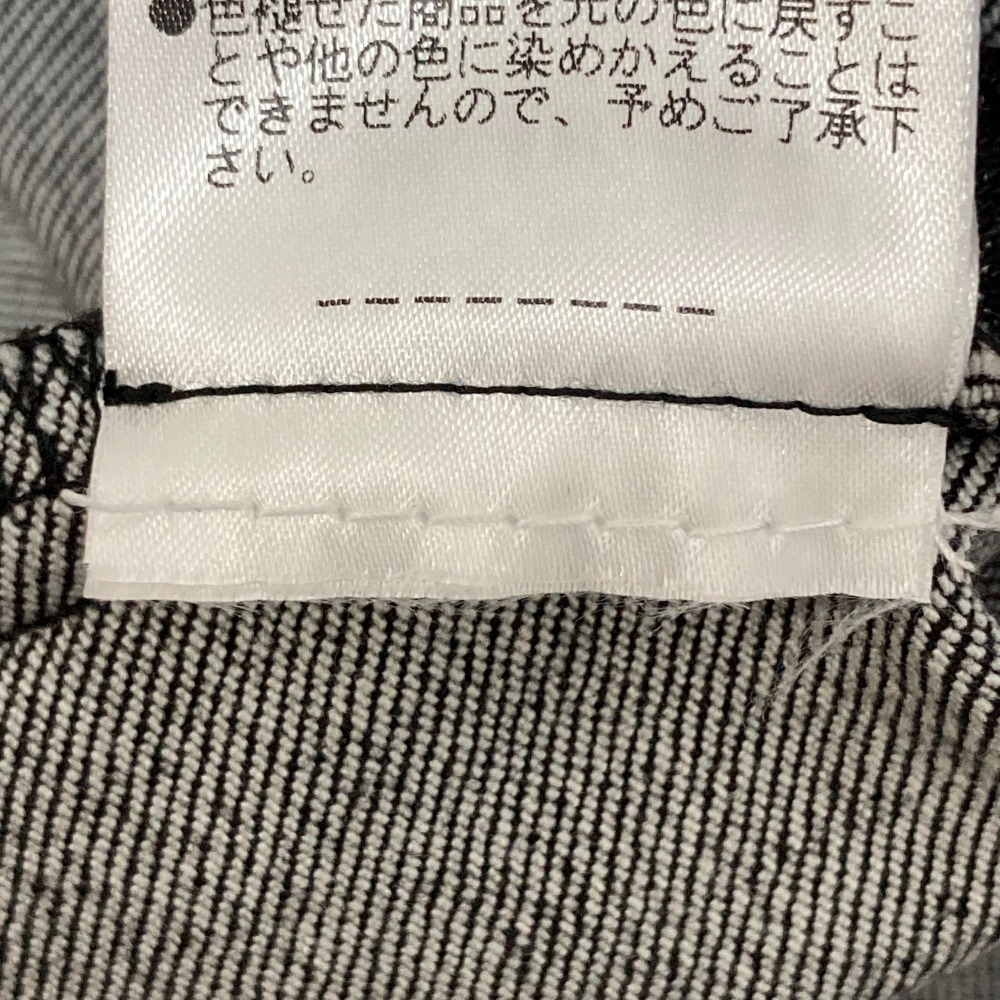 ●色褪せた商品を元の色に戻すこ
とや他の色に染めかえること は
できませんので、予めご了承下
さい。